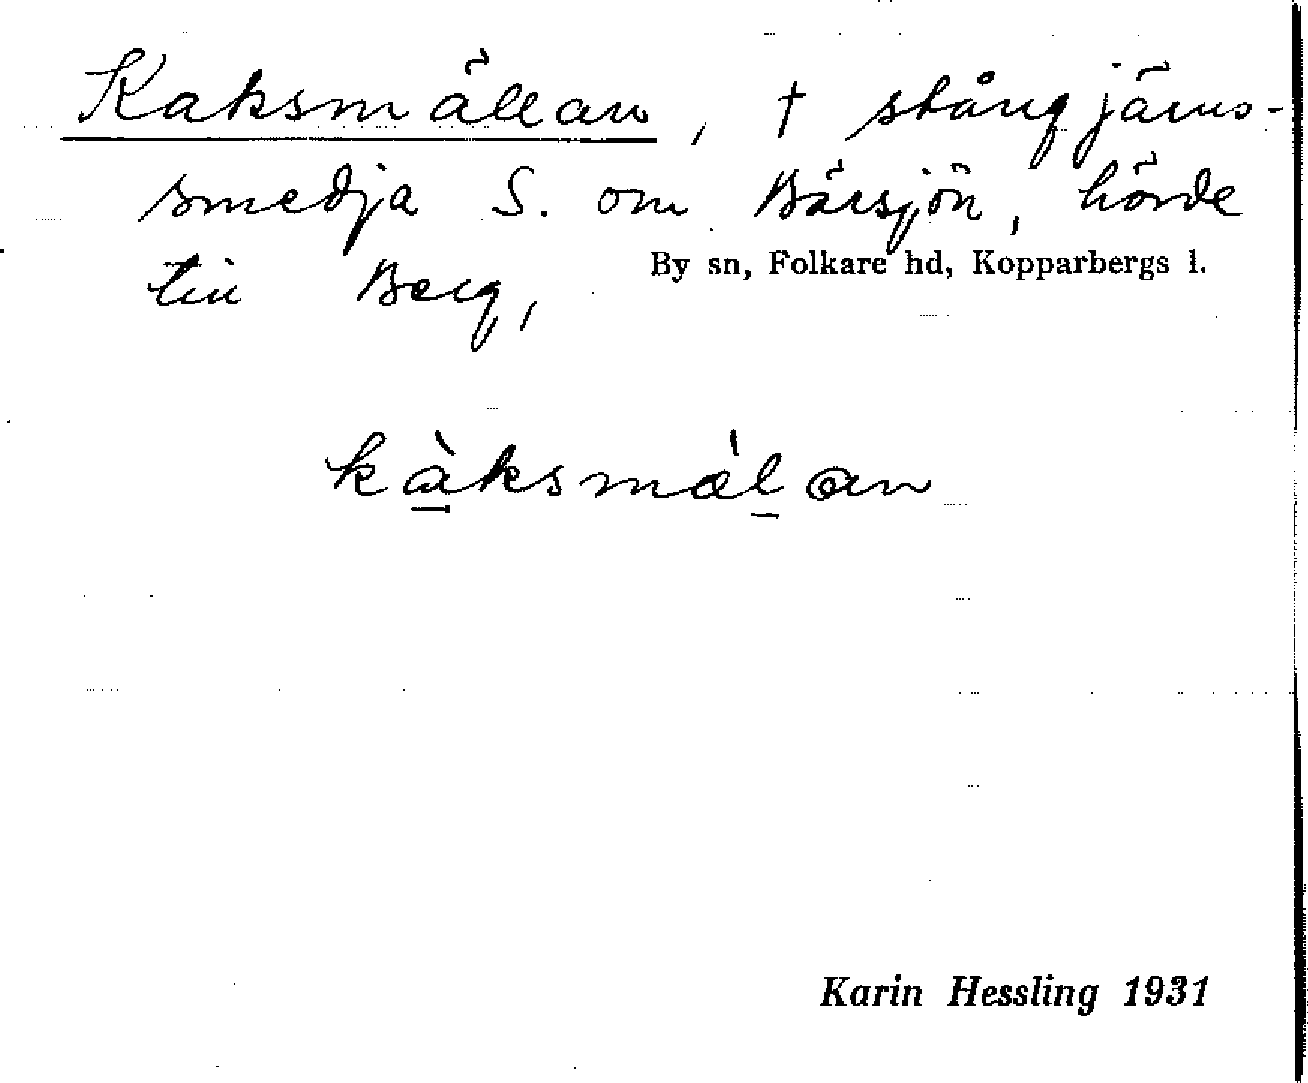 Kaksmällan, † stångjärns-
smedja S. om Bärsjön, hörde
till Berg,
By sn, Folkare hd, Kopparbergs l.
kàksmǽlan
Karin Hessling 1931